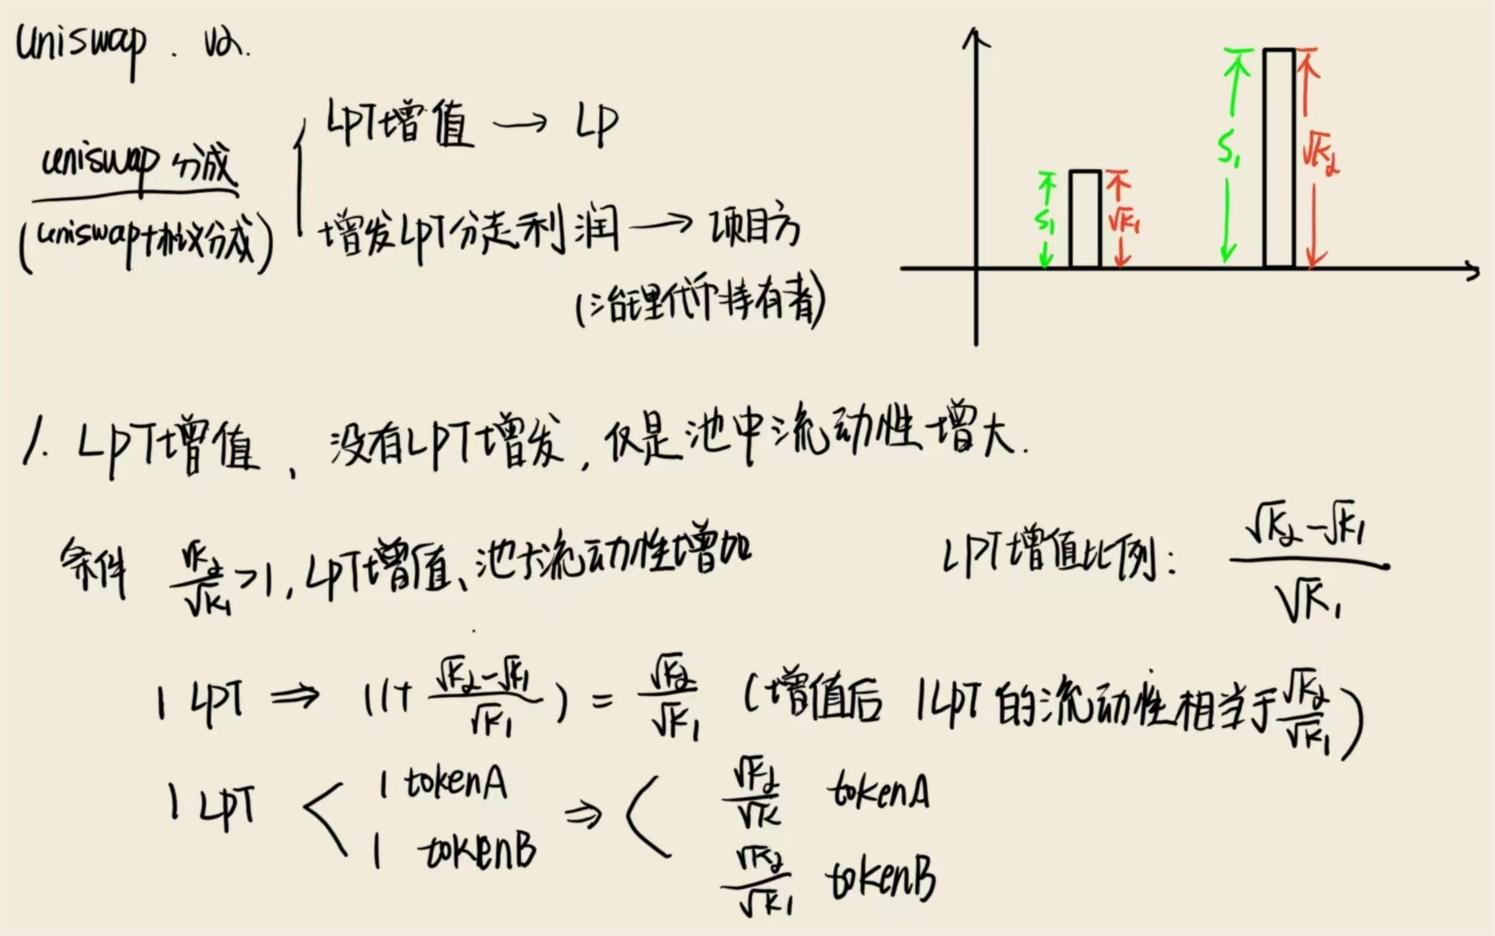 uniswap . v2.
uniswap 分成
(uniswap+协议分成)
LPT增值 → LP
增发LPT分走利润 → 项目方
(治理代币持有者)
S₁
√K₁
S₁
√K₂
1. LPT增值、没有LPT增发,仅是池中流动性增大.
条件 √K₂/√K₁ >1, LPT增值、池子流动性增加
LPT增值比例: (√K₂-√K₁)/√K₁
1 LPT ⇒ (1+ (√K₂-√K₁)/√K₁) = √K₂/√K₁ (增值后 1LPT 的流动性相当于 √K₂/√K₁)
1 LPT < 1 tokenA ⇒ < √K₂/√K tokenA
1 tokenB √K₂/√K₁ tokenB